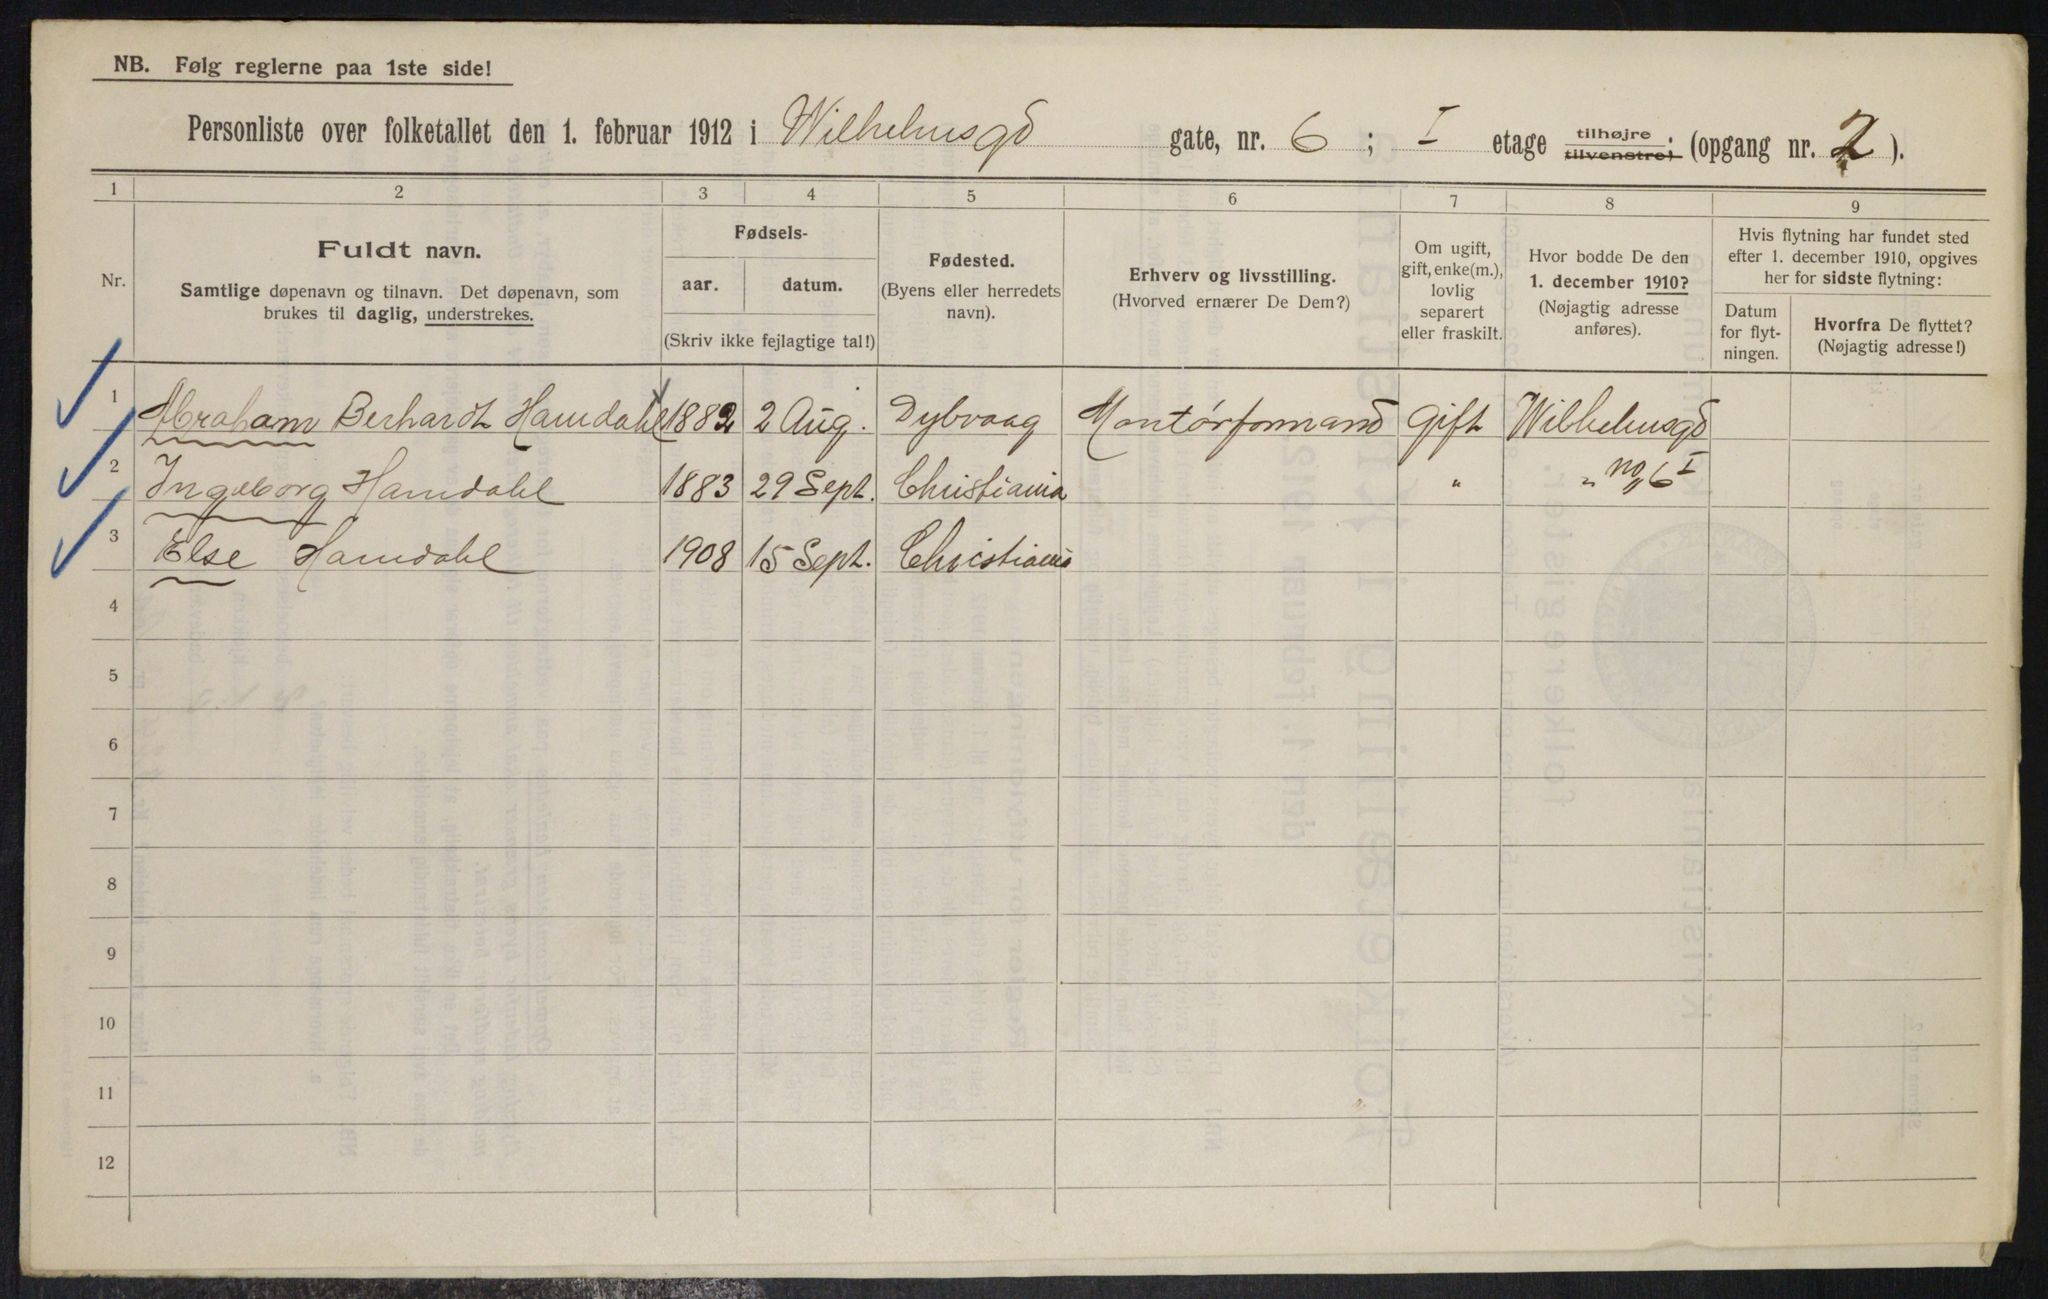 NB. Følg reglerne paa 1ste side!
Personliste over folketallet den 1. februar 1912 i Wilhelmsgd gate, nr. 6 ; I etage tilhøjre tilvenstre; (opgang nr. 2 ).
1 2 3 4 5 6 7 8 9
Nr.
Fuldt navn.
Samtlige døpenavn og tilnavn. Det døpenavn, som
brukes til daglig, understrekes.
Fødsels-
aar. datum.
(Skriv ikke fejlagtige tal!)
Fødested.
(Byens eller herredets
navn).
Erhverv og livsstilling.
(Hvorved ernærer De Dem?)
Om ugift,
gift, enke(m.),
lovlig
separert
eller fraskilt.
Hvor bodde De den
1. december 1910?
(Nøjagtig adresse
anføres).
Hvis flytning har fundet sted
efter 1. december 1910, opgives
her for sidste flytning:
Datum
for flyt-
ningen.
Hvorfra De flyttet?
(Nøjagtig adresse!)
1 Abraham Berhardt Hamdahl 1882 2 Aug. Dybvaag Montørformand Gift Wilhelmsgd
2 Ingeborg Hamdahl 1883 29 Sept. Christiania " " no 6 I
3 Else Hamdahl 1908 15 Sept. Christiania
4
5
6
7
8
9
10
11
12